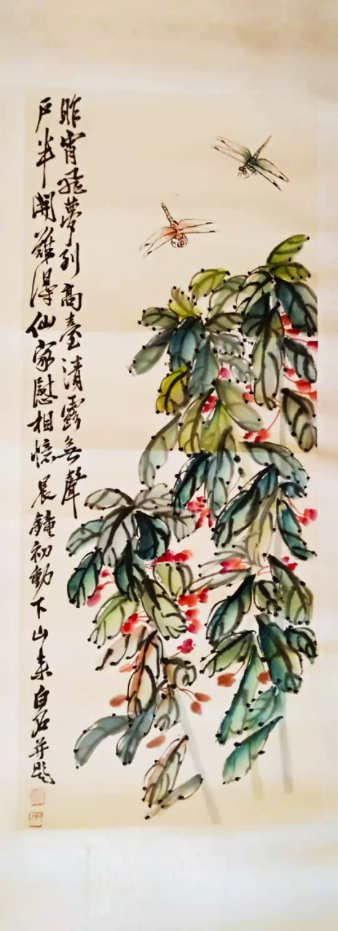 昨宵飛夢到高臺清露無聲
戶半開難得仙家慰相憶晨鐘初動下山來白石并題